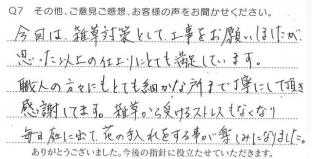 Q7 その他、ご意見ご感想、お客様の声をお聞かせください。
今回は、雑草対策として、工事をお願いしましたが、
思った以上の仕上りにとても満足しています。
職人の方々にもとても細かな所まで丁寧にして頂き
感謝してます。雑草から受けるストレスもなくなり
毎日庭に出て、花の手入れをする事が楽しみになりました。
ありがとうございました。今後の指針に役立たせていただきます。